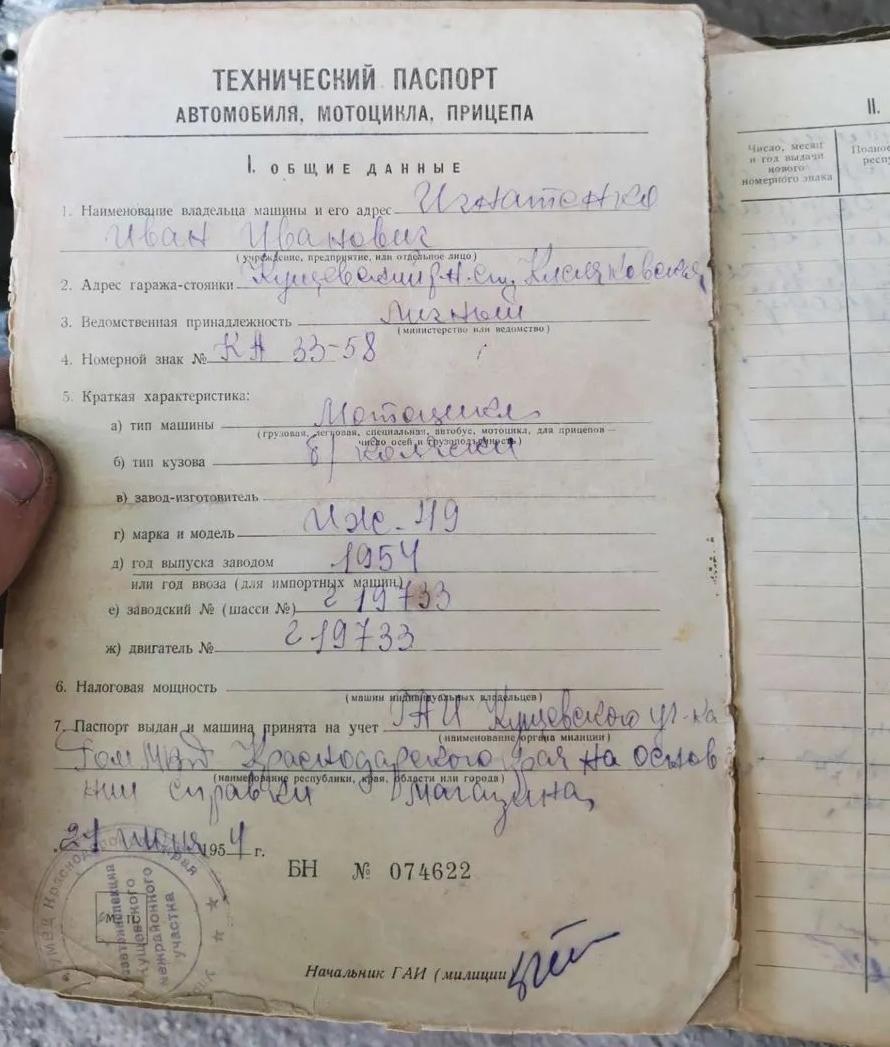 ТЕХНИЧЕСКИЙ ПАСПОРТ
АВТОМОБИЛЯ, МОТОЦИКЛА, ПРИЦЕПА
I. ОБЩИЕ ДАННЫЕ
1. Наименование владельца машины и его адрес Игнатенко
Иван Иванович
(учреждение, предприятие, или отдельное лицо)
2. Адрес гаража-стоянки Кущевский р-н. ст. Кисляковская
3. Ведомственная принадлежность Личный
(министерство или ведомство)
4. Номерной знак № КА 33-58
5. Краткая характеристика:
а) тип машины Мотоцикл
(грузовая, легковая, специальная, автобус, мотоцикл, для прицепов —
число осей и грузоподъёмность)
б) тип кузова б/коляски
в) завод-изготовитель
г) марка и модель Иж-49
д) год выпуска заводом 1954
или год ввоза (для импортных машин)
е) заводский № (шасси №) г 19733
ж) двигатель № г 19733
6. Налоговая мощность
(машин индивидуальных владельцев)
7. Паспорт выдан и машина принята на учет ГАИ Кущевского уч-ка
(наименование органа милиции)
МВД Краснодарского края на основ
(наименование республики, края, области или города)
нии справки Магазина
21 июня 1954 г.
БН № 074622
М. П.
Госавтоинспекция
Кущевского
межрайонного
участка
Краснодарского края
Начальник ГАИ (милиции)
II.
Число, месяц
и год выдачи
нового
номерного знака